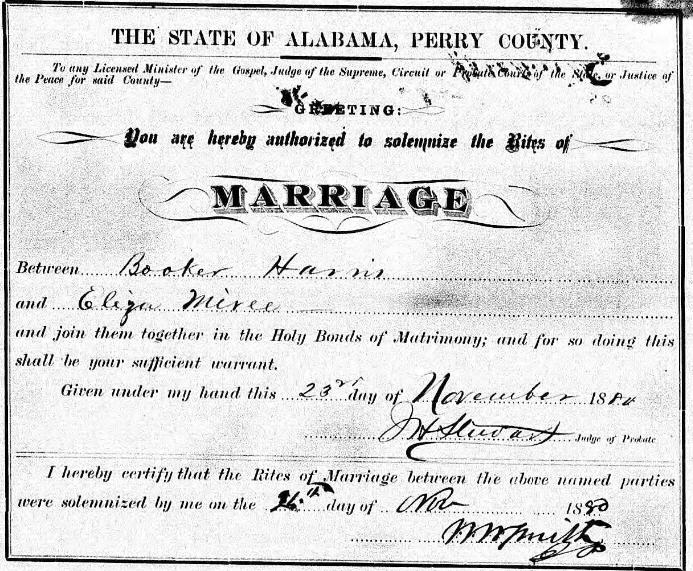 THE STATE OF ALABAMA, PERRY COUNTY.
To any Licensed Minister of the Gospel, Judge of the Supreme, Circuit or Probate Court of the State, or Justice of
the Peace for said County—
GREETING:
You are hereby authorized to solemnize the Rites of
MARRIAGE
Between Booker Harris
and Eliza
and join them together in the Holy Bonds of Matrimony; and for so doing this
shall be your sufficient warrant.
Given under my hand this 23rd day of November 1880
JH Stewart Judge of Probate
I hereby certify that the Rites of Marriage between the above named parties
were solemnized by me on the 26th day of Nov 1880